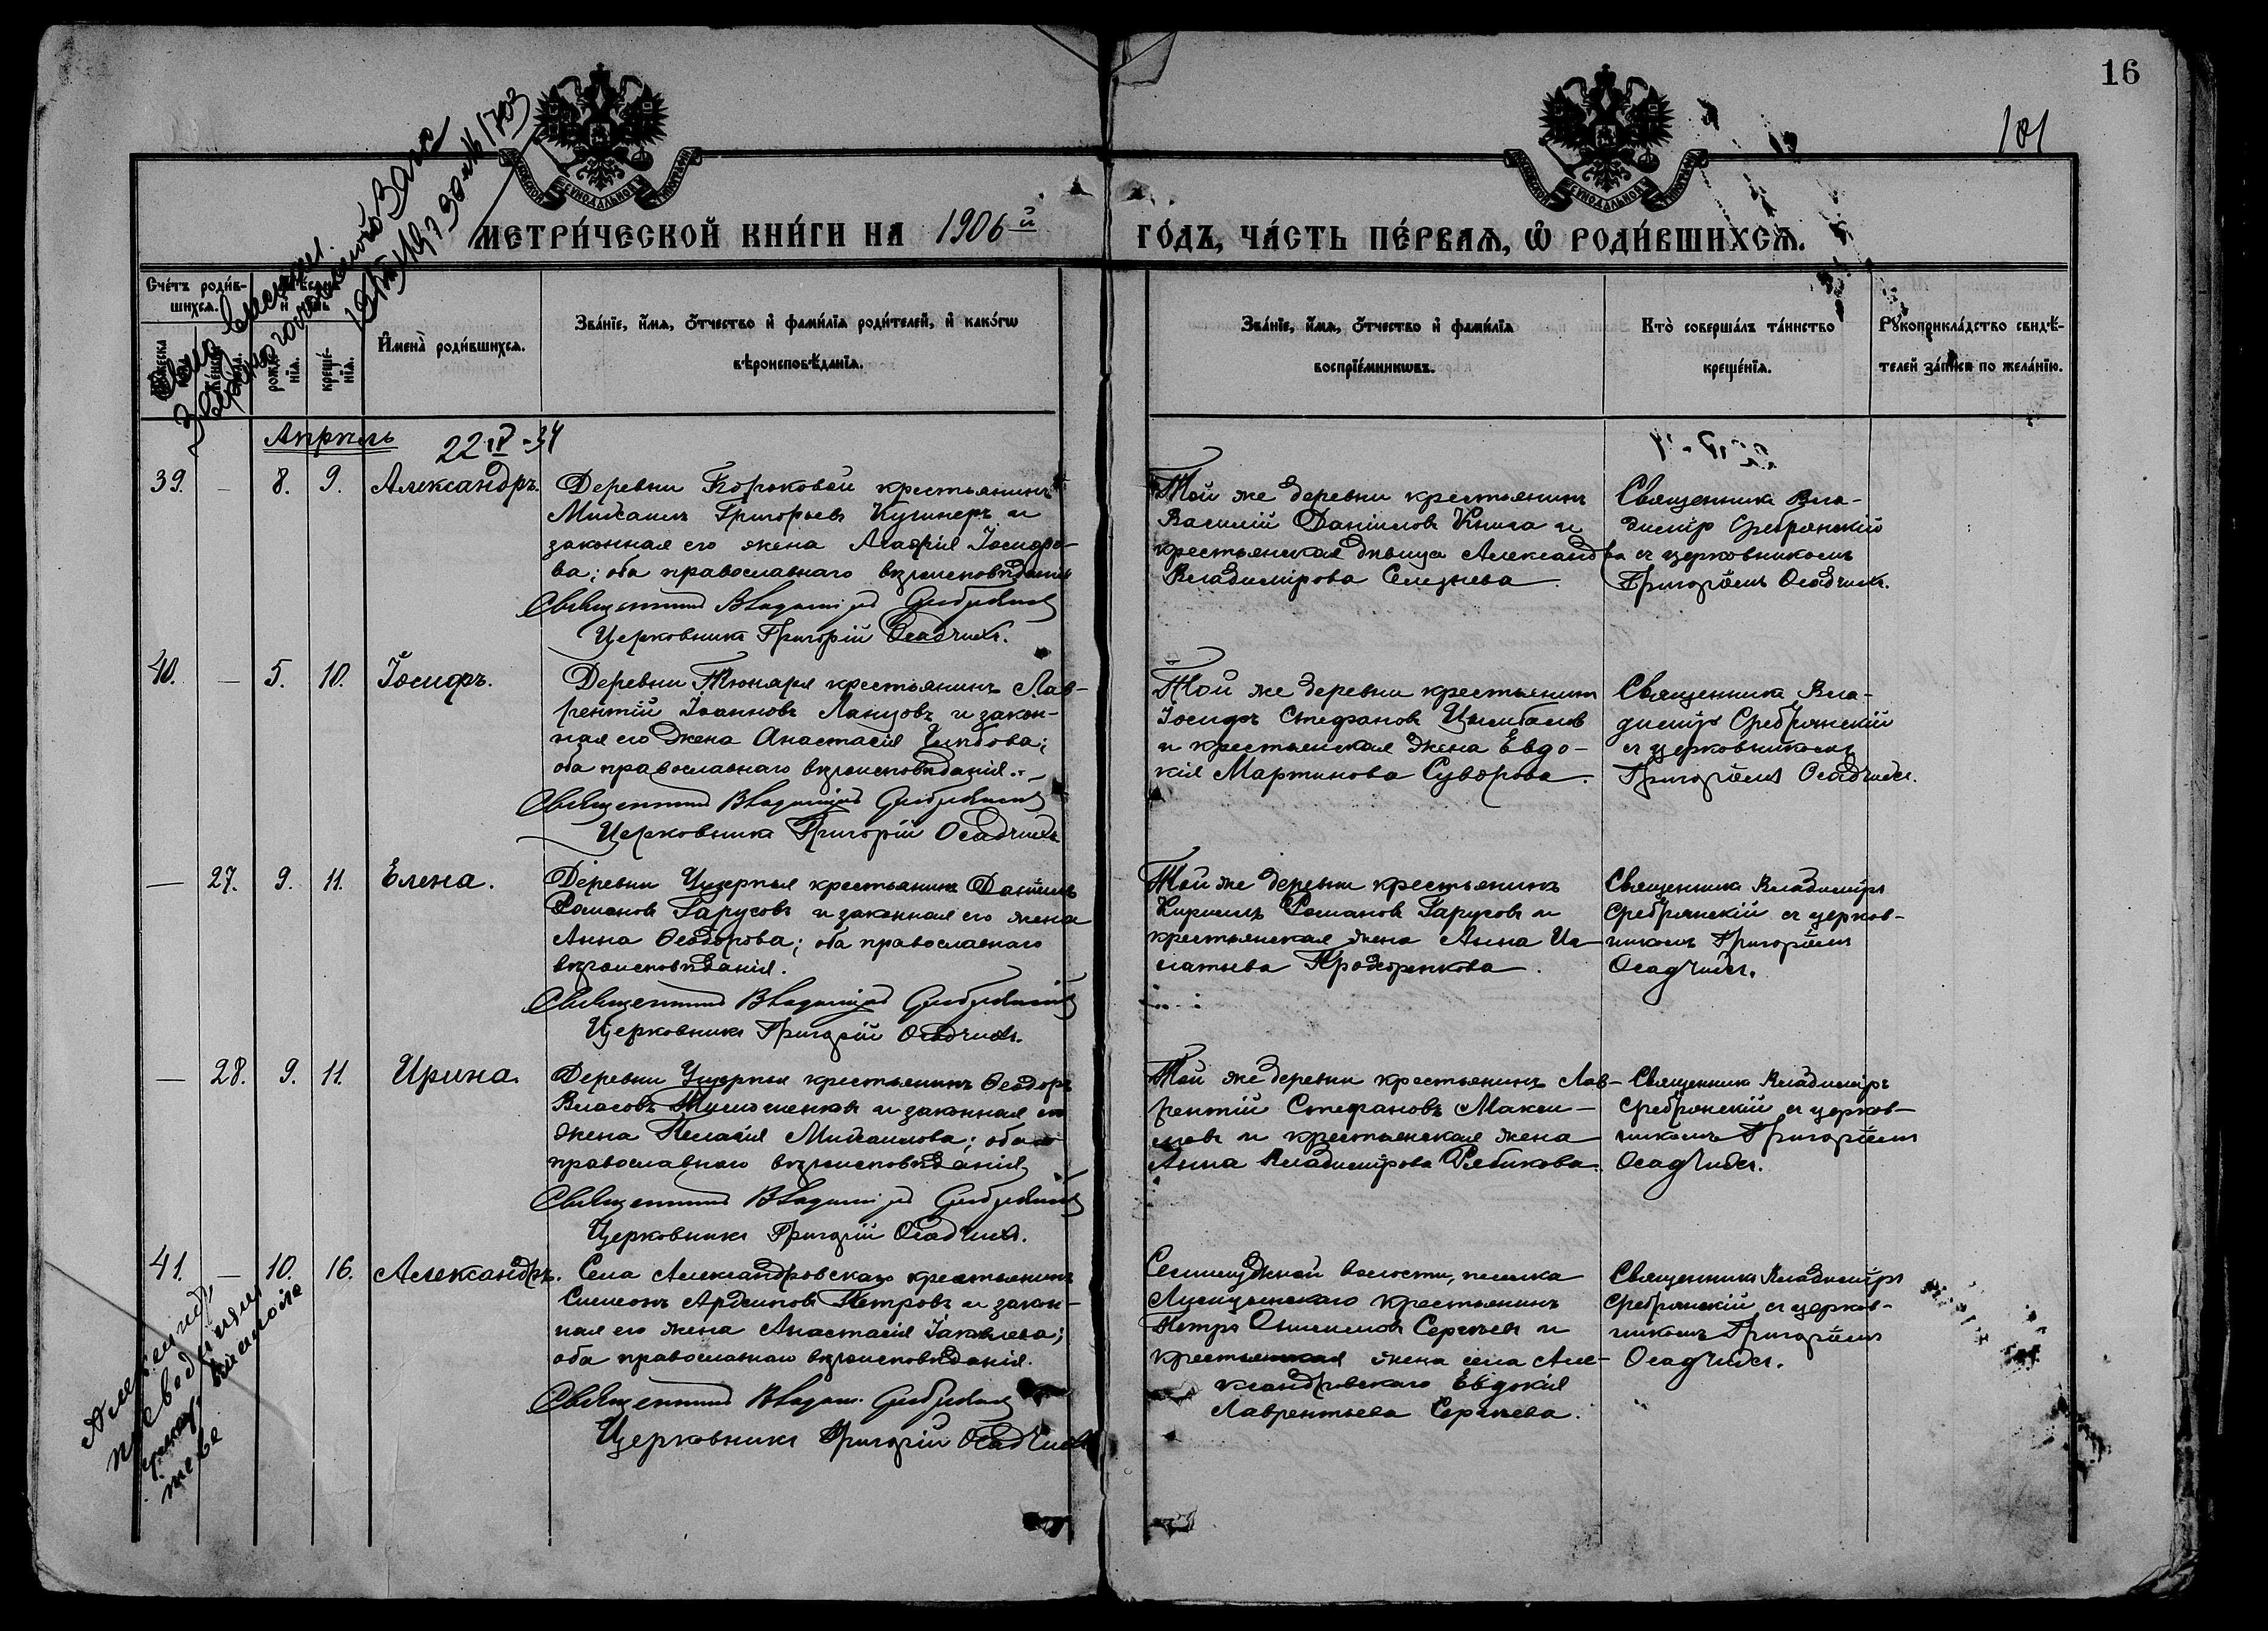 16
101
МЕТРИ́ЧЕСКОЙ КНИ́ГИ НА 1906й
ГО́ДЪ, ЧА́СТЬ ПЕ́РВАѦ, Ѡ҆ РОДИ́ВШИХСѦ.
Сче́тъ роди́в-
шихсѧ.
рожде́-
нїѧ.
креще́-
нїѧ.
И҆мена̀ роди́вшихсѧ.
Зва́нїе, и҆́мѧ, ѻ҆́тчество и҆ фами́лїѧ роди́телей, и҆ како́гѡ
вѣроисповѣ́данїѧ.
Зва́нїе, и҆́мѧ, ѻ҆́тчество и҆ фами́лїѧ
воспрїе́мникѡвъ.
Кто̀ соверша́лъ та́инство
креще́нїѧ.
Рꙋкоприкла́дство свидѣ́-
телей за́писи по жела́нїю.
Апрѣль
22 IV - 34
39. — 8. 9. Александръ.
Деревни крестьянинъ
Михаилъ Григорьевъ Кушнеръ и
законная его жена Агафія Іосифо-
ва; оба православнаго вѣроисповѣданія
Священникъ Владиміръ Сребрянскій
Церковникъ Григорій Осадчихъ.
Той же деревни крестьянинъ
Василій Даніиловъ Книга и
крестьянская дѣвица Александра
Владимірова Селезнева.
Священникъ Вла-
диміръ Сребрянскій
съ церковникомъ
Григоріемъ Осадчихъ.
40. — 5. 10. Іосифъ.
Деревни Тюняря крестьянинъ Лав-
рентій Іоанновъ Ланцовъ и закон-
ная его жена Анастасія Глѣбова;
оба православнаго вѣроисповѣданія.
Священникъ Владиміръ Сребрянскій
Церковникъ Григорій Осадчихъ
Той же деревни крестьянинъ
Іосифъ Стефановъ Цымбаловъ
и крестьянская жена Евдо-
кія Мартинова Суворова.
Священникъ Вла-
диміръ Сребрянскій
съ церковникомъ
Григоріемъ Осадчихъ.
— 27. 9. 11. Елена.
Деревни крестьянинъ Даніилъ
Романовъ Гарусовъ и законная его жена
Анна Ѳеодорова; оба православнаго
вѣроисповѣданія.
Священникъ Владиміръ Сребрянскій
Церковникъ Григорій Осадчихъ.
Той же деревни крестьянинъ
Кириллъ Романовъ Гарусовъ и
крестьянская жена Анна Иг-
натьева Прохоренкова.
Священникъ Владиміръ
Сребрянскій съ церков-
никомъ Григоріемъ
Осадчихъ.
— 28. 9. 11. Ирина.
Деревни крестьянинъ Ѳеодоръ
Власовъ и законная его
жена Пелагія Михаилова; оба
православнаго вѣроисповѣданія
Священникъ Владиміръ Сребрянскій
Церковникъ Григорій Осадчихъ.
Той же деревни крестьянинъ Лав-
рентій Стефановъ Макси-
мовъ и крестьянская жена
Анна Владимірова Рябикова.
Священникъ Владиміръ
Сребрянскій съ церков-
никомъ Григоріемъ
Осадчихъ.
41. — 10. 16. Александръ.
Села Александровскаго крестьянинъ
Симеонъ Петровъ и закон-
ная его жена Анастасія Іаковлева;
оба православнаго вѣроисповѣданія.
Священникъ Владим. Сребрянскій
Церковникъ Григорій Осадчихъ
волости, поселка
крестьянинъ
Петръ Онисимовъ Сергѣевъ и
крестьянская жена села Але-
ксандровскаго Евдокія
Лаврентьева Сергѣева.
Священникъ Владиміръ
Сребрянскій съ церков-
никомъ Григоріемъ
Осадчихъ.